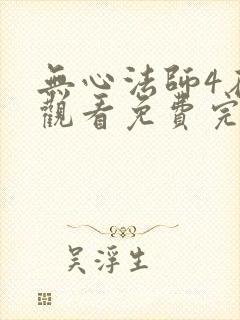 無心法師4
觀看免費完
吳浮生